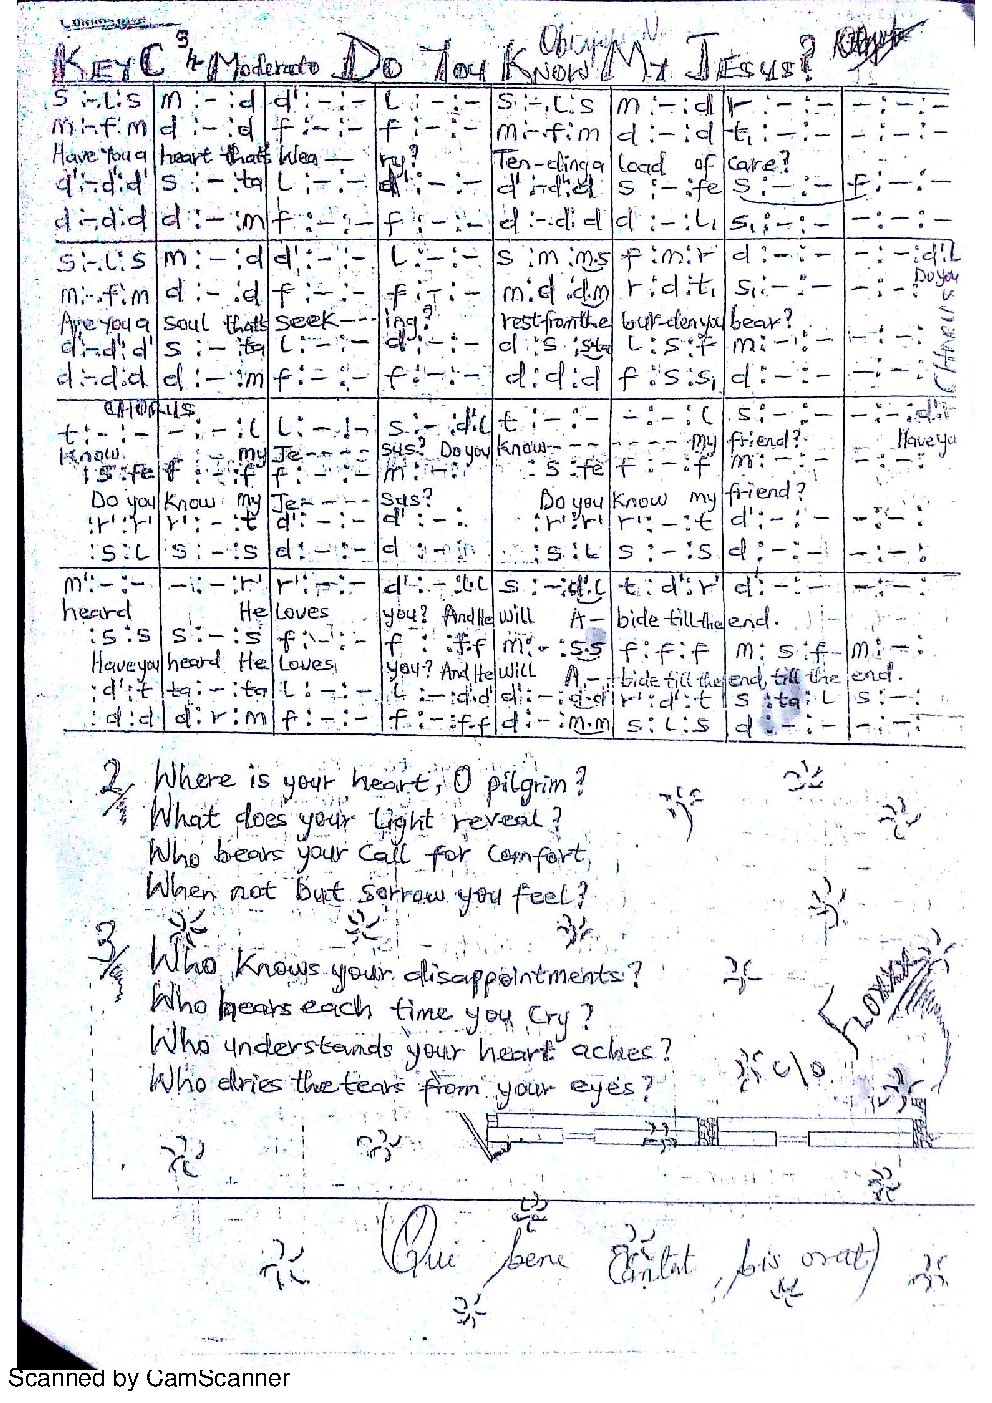 KEY C 3/4 Moderato DO YOU KNOW MY JESUS?
s :-.l:s | m :- :d | d' :- :- | l :- :- | s :-.l:s | m :- :d | r :- :- | - :- :-
m :-.f:m | d :- :d | f :- :- | f :- :- | m :-.f:m | d :- :d | t, :- :- | - :- :-
Have you a heart that's wea--- ry? Ten-ding a load of care?
d' :-.d':d' | s :- :ta | l :- :- | d' :- :- | d' :-.d':d | s :- :fe | s :- :- | f :- :-
d :-.d:d | d :- :m | f :- :- | f :- :- | d :-.d:d | d :- :l, | s, :- :- | - :- :-
s :-.l:s | m :- :d | d' :- :- | l :- :- | s :m :m.s | f :m :r | d :- :- | - :- :d'.l
Do you
m :-.f:m | d :- :d | f :- :- | f :- :- | m :d :d.m | r :d :t, | s, :- :- | - :- :
Are you a soul that's seek--- ing? rest from the bur-den you bear?
d' :-.d':d' | s :- :ta | l :- :- | d' :- :- | d :s :s.ta | l :s :f | m :- :- | - :- :
d :-.d:d | d :- :m | f :- :- | f :- :- | d :d :d | f :s :s, | d :- :- | - :- :
CHORUS
CHORUS
t :- :- | - :- :l | l :- :- | s :- :d'.l | t :- :- | - :- :l | s :- :- | - :- :d'.r'
Know ---- my Je---- sus? Do you know---- ---- my friend? Have yo
:s :fe | f :- :f | f :- :- | m :- :- | :s :fe | f :- :f | m :- :- | - :- :
Do you know my Je---- sus? Do you know my friend?
:r' :r' | r' :- :t | d' :- :- | d' :- : | :r' :r' | r' :- :t | d' :- :- | - :- :
:s :l | s :- :s | d :- :- | d :- : | :s :l | s :- :s | d :- :- | - :- :
m' :- :- | - :- :r' | r' :- :- | d' :- :l.l | s :- :d'.l | t :d' :r' | d' :- :- | :- :
heard He loves you? And He will A- bide till the end.
:s :s | s :- :s | f :- :- | f :- :f.f | m :- :s.s | f :f :f | m :s :f | m :- :
Have you heard He loves you? And He will A- bide till the end, till the end.
:d' :t | ta :- :ta | l :- :- | l :- :d'.d' | d' :- :d'.d' | r' :d' :t | s :ta :l | s :- :
:d :d | d :r :m | f :- :- | f :- :f.f | d :- :m.m | s :l :s | d :- :- | - :- :
2/ Where is your heart, O pilgrim?
What does your light reveal?
Who bears your call for comfort,
When not but sorrow you feel?
3/ Who Knows your disappointments?
Who hears each time you cry?
Who understands your heart aches?
Who dries the tears from your eyes?
Floxxxx
c/o
(Qui bene Cantat, bis orat)
Scanned by CamScanner